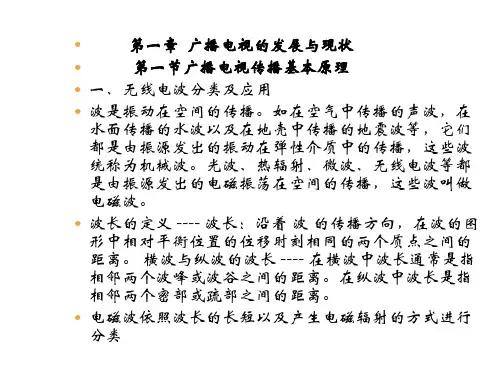 • 第一章 广播电视的发展与现状
• 第一节广播电视传播基本原理
• 一、无线电波分类及应用
• 波是振动在空间的传播。如在空气中传播的声波，在
水面传播的水波以及在地壳中传播的地震波等，它们
都是由振源发出的振动在弹性介质中的传播，这些波
统称为机械波。光波、热辐射、微波、无线电波等都
是由振源发出的电磁振荡在空间的传播，这些波叫做
电磁波。
• 波长的定义 ---- 波长：沿着 波 的传播方向，在波的图
形中相对平衡位置的位移时刻相同的两个质点之间的
距离。 横波与纵波的波长 ---- 在横波中波长通常是指
相邻两个波峰或波谷之间的距离。在纵波中波长是指
相邻两个密部或疏部之间的距离。
• 电磁波依照波长的长短以及产生电磁辐射的方式进行
分类